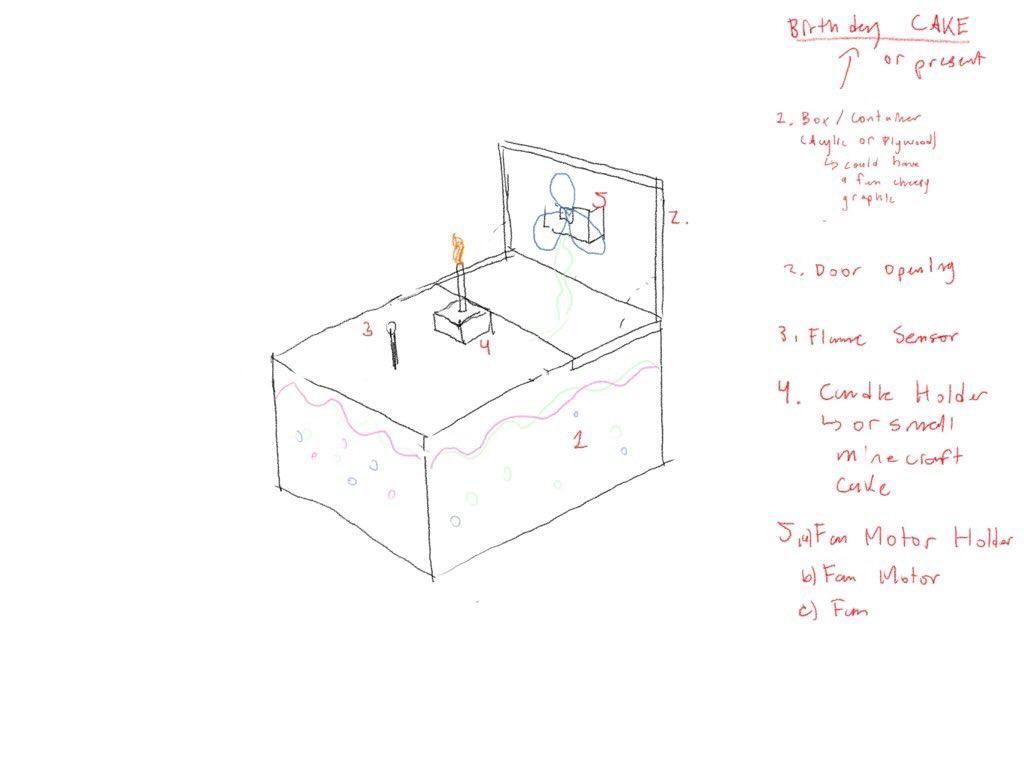 Birthday CAKE
or present
2. Box / Container
(Acylic or Plywood)
↳ could have
a fun cheesy
graphic
5
2.
2. Door opening
3
3. Flame Sensor
4
4. Candle Holder
↳ or small
minecraft
Cake
1
5.a) Fan Motor Holder
b) Fan Motor
c) Fan